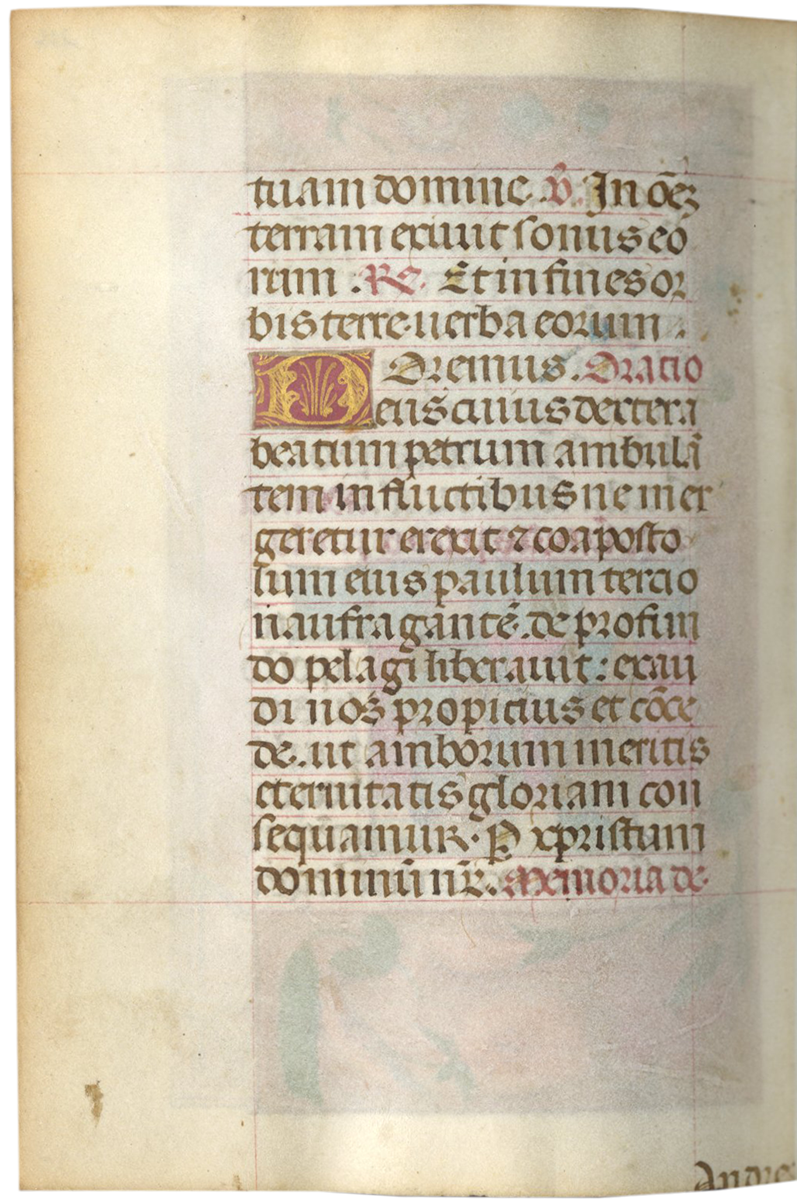 tuam domine. v̄. In oēz
terram exiuit sonus eo
rum. R͞E. Et in fines or
bis terre uerba eorum.
Oremus. Oratio
Deus cuius dextera
beatum petrum ambulā
tem in fluctibus ne mer
geretur erexit ⁊ coaposto
lum eius paulum tercio
naufragantē. de profun
do pelagi liberauit: exau
di nos propicius et cōce
de. ut amborum meritis
eternitatis gloriam con
sequamur. P xpristum
dominū nr̄. Memoria de
Andre